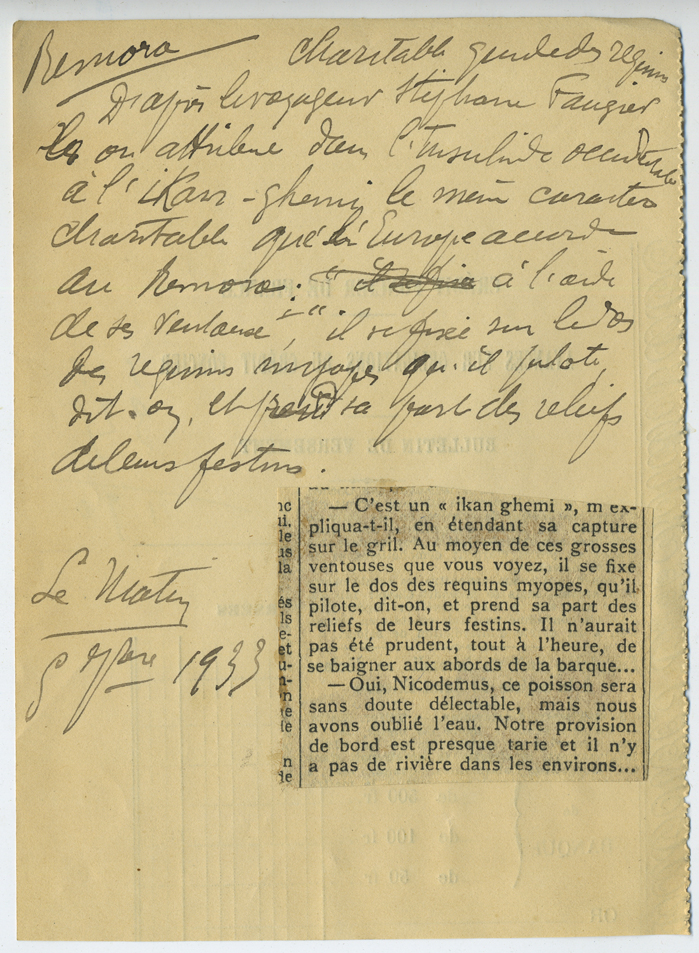 Remora charitable guide des requins
D'après le voyageur Stéphane Faugier
on attribue dans l'Insulinde occidentale
à l'ikan-ghemi le même caractère
charitable que l'Europe accorde
au Remora : à l'aide
de ses ventouses, il se fixe sur le dos
des requins myopes qu'il pilote,
dit-on, et prend sa part des reliefs
de leurs festins.
— C'est un « ikan ghemi », m'ex-
pliqua-t-il, en étendant sa capture
sur le gril. Au moyen de ces grosses
ventouses que vous voyez, il se fixe
sur le dos des requins myopes, qu'il
pilote, dit-on, et prend sa part des
reliefs de leurs festins. Il n'aurait
pas été prudent, tout à l'heure, de
se baigner aux abords de la barque...
— Oui, Nicodemus, ce poisson sera
sans doute délectable, mais nous
avons oublié l'eau. Notre provision
de bord est presque tarie et il n'y
a pas de rivière dans les environs...
Le Matin
1933